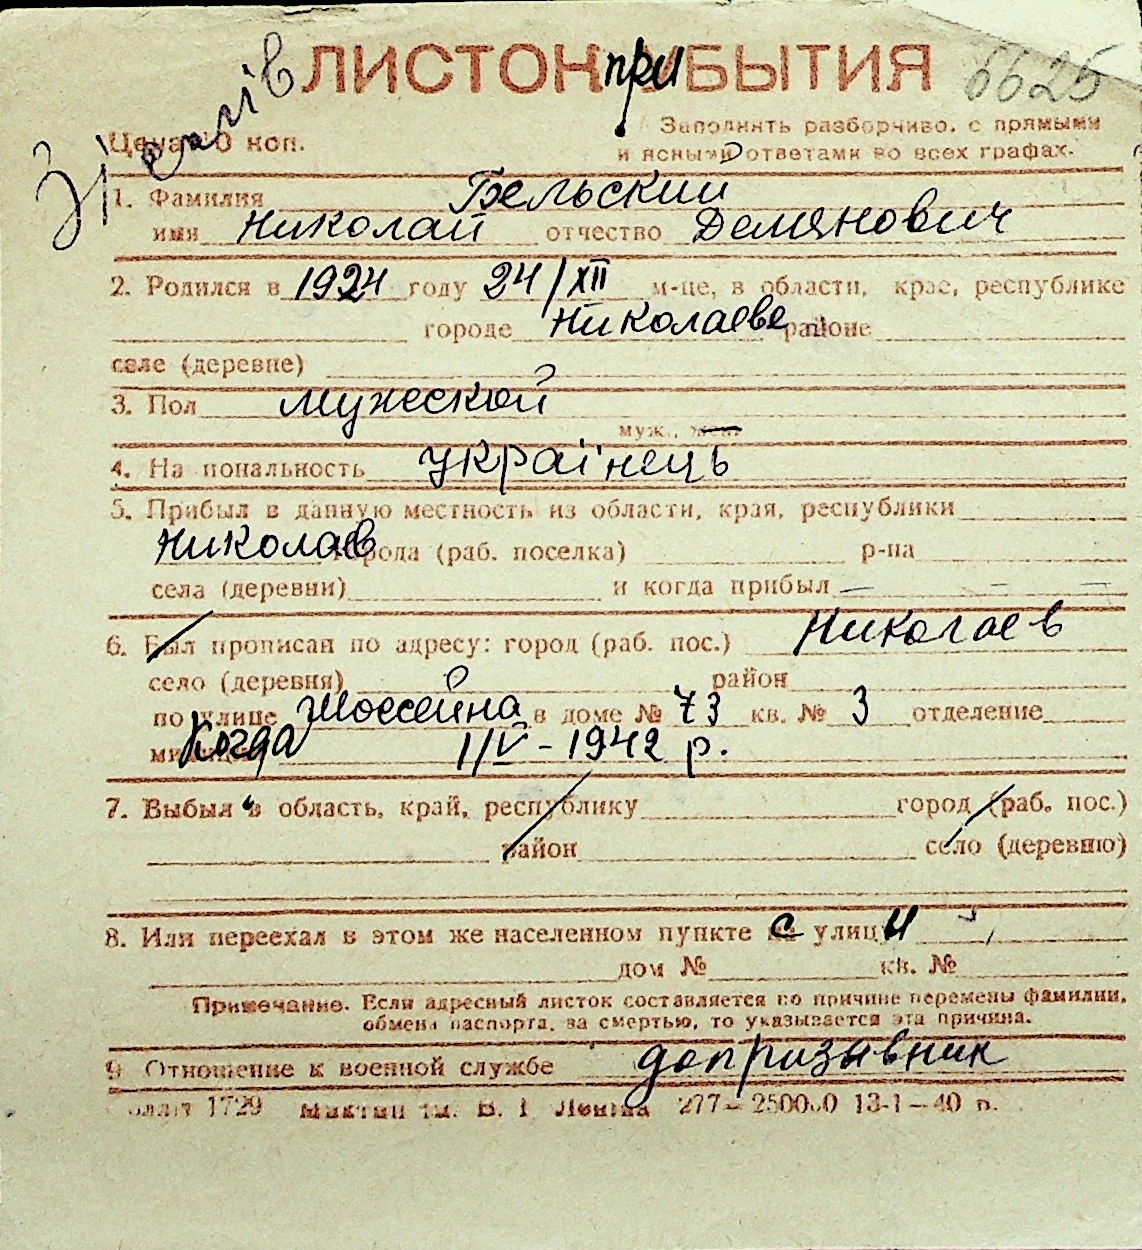 ЛИСТОК при УБЫТИЯ 6625
Цена 10 коп.
Заполнять разборчиво, с прямыми
и ясными ответами во всех графах.
1. Фамилия Бельский
имя Николай отчество Демянович
2. Родился в 1924 году 24/XII м-це, в области, крае, республике
городе Николаеве районе
селе (деревне)
3. Пол мужеской
муж., жен.
4. Национальность українець
5. Прибыл в данную местность из области, края, республики
Николаев города (раб. поселка) р-на
села (деревни) и когда прибыл —
6. Был прописан по адресу: город (раб. пос.) Николаев
село (деревня) район
по улице Шоссейна в доме № 73 кв. № 3 отделение
милиции Когда 1/V - 1942 р.
7. Выбыл в область, край, республику город (раб. пос.)
район село (деревню)
8. Или переехал в этом же населенном пункте с улицы
дом № кв. №
Примечание. Если адресный листок составляется по причине перемены фамилии,
обмена паспорта, за смертью, то указывается эта причина.
9. Отношение к военной службе допризывник
1729 277 — 250000 13-1—40 р.